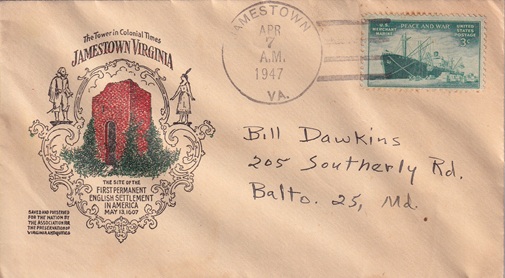 The Tower in Colonial Times
JAMESTOWN VIRGINIA
THE SITE OF THE
FIRST PERMANENT
ENGLISH SETTLEMENT
IN AMERICA
MAY 13, 1607
SAVED AND PRESERVED
FOR THE NATION BY
THE ASSOCIATION FOR
THE PRESERVATION OF
VIRGINIA ANTIQUITIES
JAMESTOWN
APR
7
A.M.
1947
VA.
U.S.
MERCHANT
MARINE
PEACE AND WAR
UNITED
STATES
POSTAGE
3¢
Bill Dawkins
205 Southerly Rd.
Balto. 25, Md.